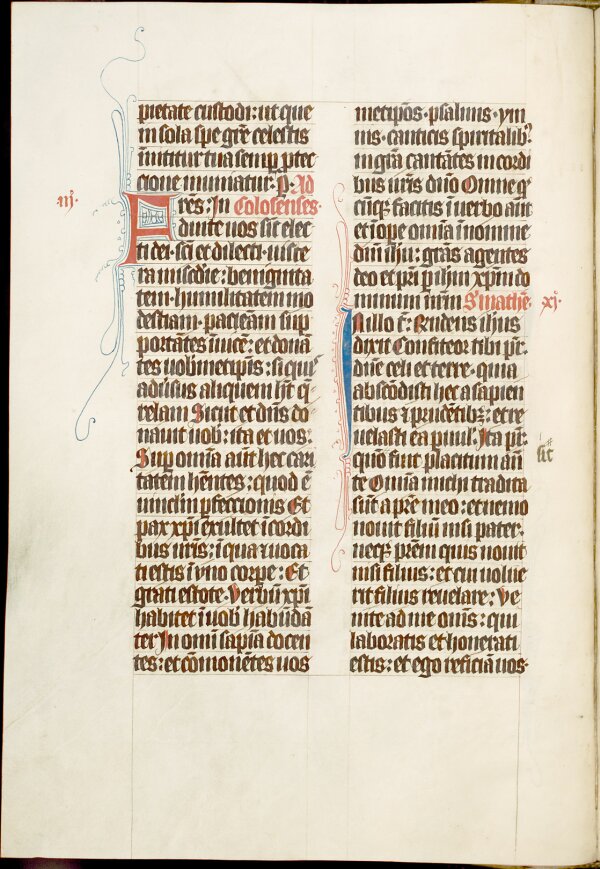 pietate custodi: ut que
in sola spe gr̄e celestis
ĩnititur tua semp ptec
cione muniatur. P. Ad
iij.
Fres: In Colosenses.
Duite uos sic̄ elec
ti dei. sc̄i et dilecti. uisce
ra mis̄die: benignita
tem. humilitatem mo
destiam. paciēam. sup
portātes ĩuicē: et donā
tes uobmetip̄is: si quis
adūsus aliquem h̄t q̄
relam Sicut et dn̄s do
nauit uob: ita et uos:
Sup om̄ia aūt hec cari
tatem h̄entes: quod ē
uinclm pfeccionis Et
pax xp̄i exultet ĩ cordi
bus ur̄is: ĩ qua uoca
ti estis ĩ vno corpe: Et
grati estote Verbū xp̄i
habitet ĩ uob habūdā
ter In omī sapiā docen
tes: et cōmonētes uos
metip̄os. psalmis. ym
nis. canticis spiritalib
in gr̄a cantātes in cordi
bus ur̄is dn̄o Omne q̄
cūq; facitis ĩ uerbo aūt
et ĩ ope om̄ia in nomine
dn̄i ih̄u: gr̄as agentes
deo et pr̄i p ih̄m xp̄m do
minum nr̄m S. mathē. xj.
In illo t̄: Rn̄dens ih̄us
dixit Confiteor tibi pr̄.
dn̄e celi et terre. quia
abscōdisti hec a sapien
tibus ⁊ prudētib;: et re
uelasti ea puul. Ita pr̄:
sic
quō fuit placitum añ
te Omīa michi tradita
sūt a pr̄e meo: et nemo
nouit filiū nisi pater.
neq; pr̄em quis nouit
nisi filius: et cui uolue
rit filius reuelare: Ve
nite ad me om̄s: qui
laboratis et honerati
estis: et ego reficiā uos.